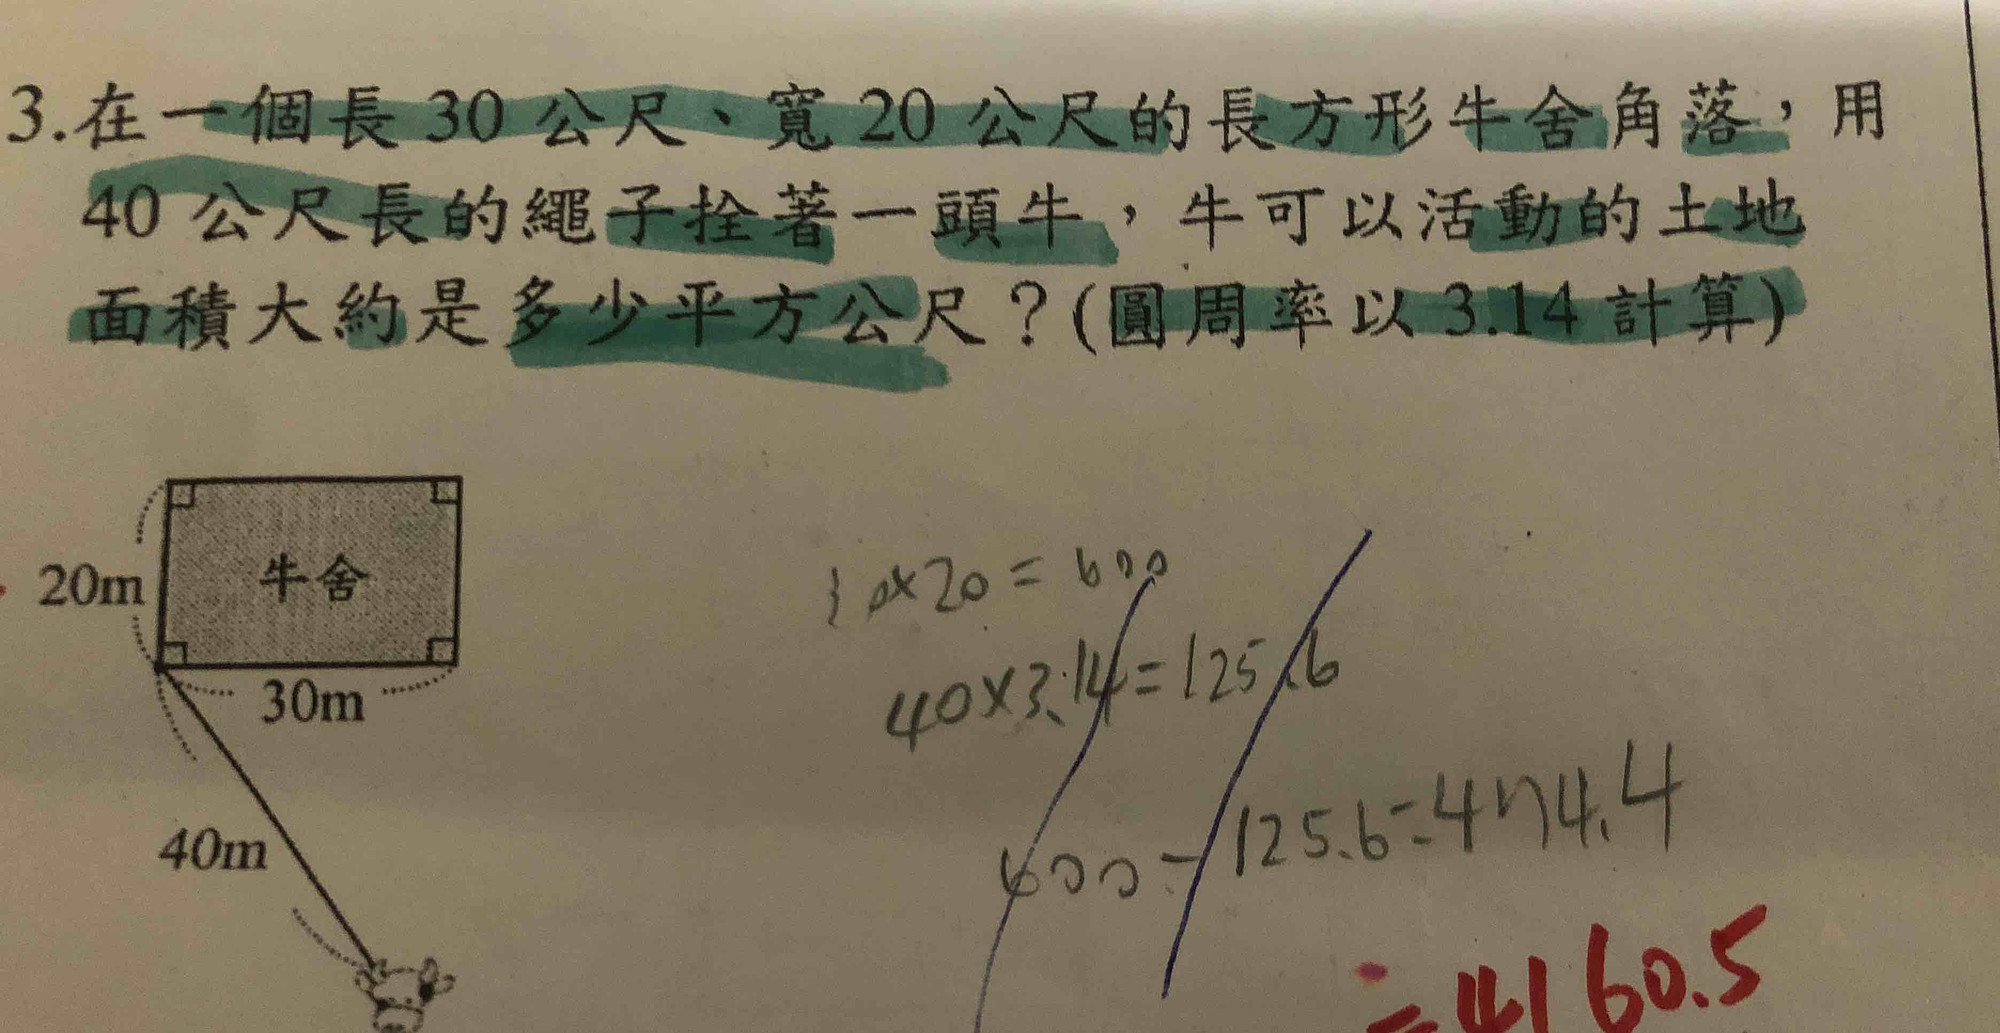 3.在一個長 30 公尺、寬 20 公尺的長方形牛舍角落，用
40 公尺長的繩子拴著一頭牛，牛可以活動的土地
面積大約是多少平方公尺？(圓周率以 3.14 計算)
20m
牛舍
30m
40m
30×20=600
40×3.14=125.6
600-125.6=474.4
=4160.5